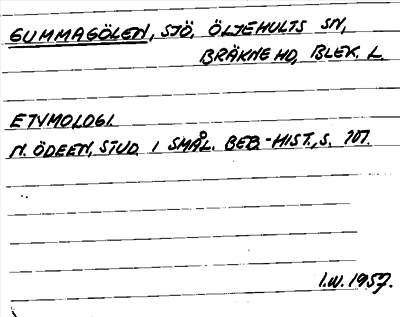 GUMMAGÖLEN, SJÖ, ÖLJEHULTS SN,
BRÄKNE HD, BLEK. L.
ETYMOLOGI.
N. ÖDEEN, STUD. I SMÅL. BEB.-HIST., S. 107.
I.W. 1957.